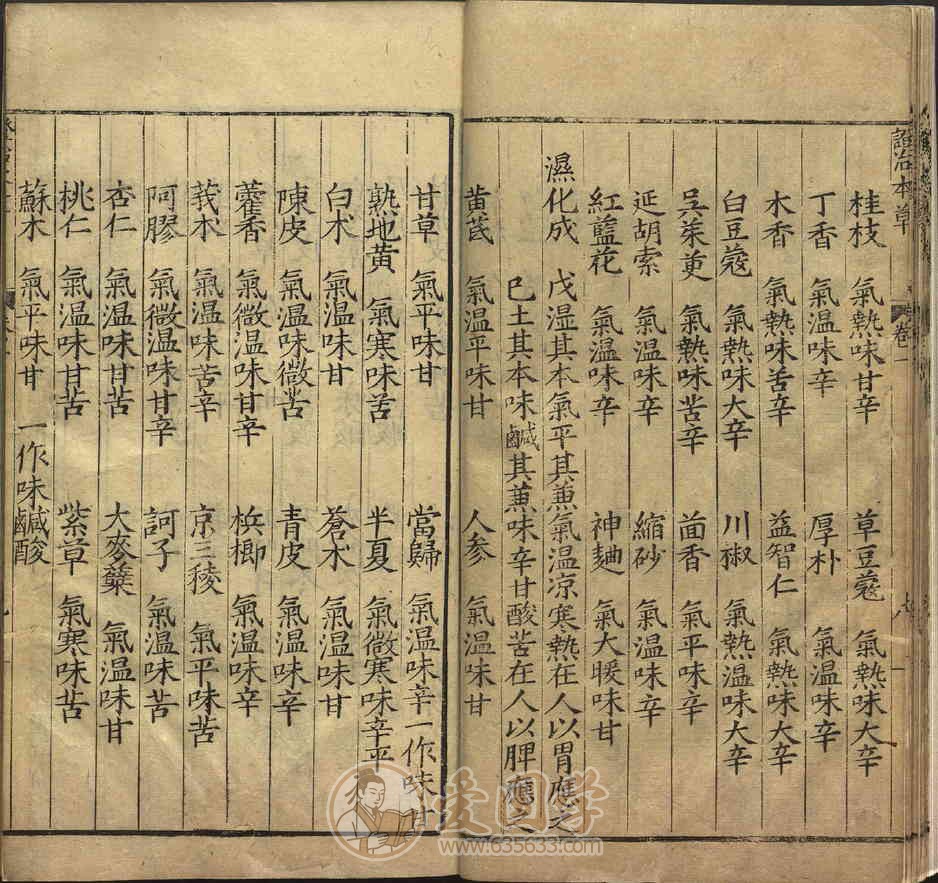 證治本草 卷一
桂枝 氣熱味甘辛 草豆蔻 氣熱味大辛
丁香 氣溫味辛 厚朴 氣溫味辛
木香 氣熱味苦辛 益智仁 氣熱味大辛
白豆蔻 氣熱味大辛 川椒 氣熱溫味大辛
吳茱萸 氣熱味苦辛 茴香 氣平味辛
延胡索 氣溫味辛 縮砂 氣溫味辛
紅藍花 氣溫味辛 神麯 氣大暖味甘
濕化成 戊湿其本氣平其兼氣溫凉寒熱在人以胃應之
巳土其本味鹹其兼味辛甘酸苦在人以脾應之
黃芪 氣溫平味甘 人參 氣溫味甘
甘草 氣平味甘 當歸 氣溫味辛一作味甘
熟地黃 氣寒味苦 半夏 氣微寒味辛平
白术 氣溫味甘 蒼术 氣溫味甘
陳皮 氣溫味微苦 青皮 氣溫味辛
藿香 氣微溫味甘辛 梹榔 氣溫味辛
莪术 氣溫味苦辛 京三稜 氣平味苦
阿膠 氣微溫味甘辛 訶子 氣溫味苦
杏仁 氣溫味甘苦 大麥糵 氣溫味甘
桃仁 氣溫味甘苦 紫草 氣寒味苦
蘇木 氣平味甘 一作味鹹酸
爱国学
www.635633.com